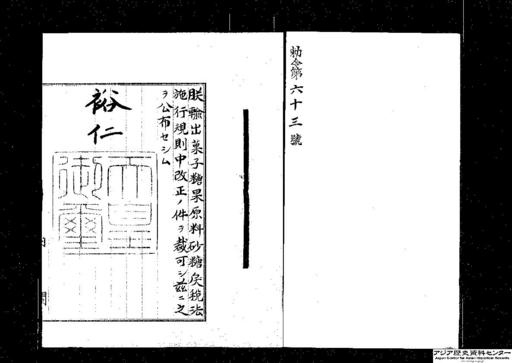 勅令第六十三號
朕輸出菓子糖果原料砂糖戻税法
施行規則中改正ノ件ヲ裁可シ茲ニ之
ヲ公布セシム
裕仁
天皇
御璽
内閣
アジア歴史資料センター
Japan Center for Asian Historical Records